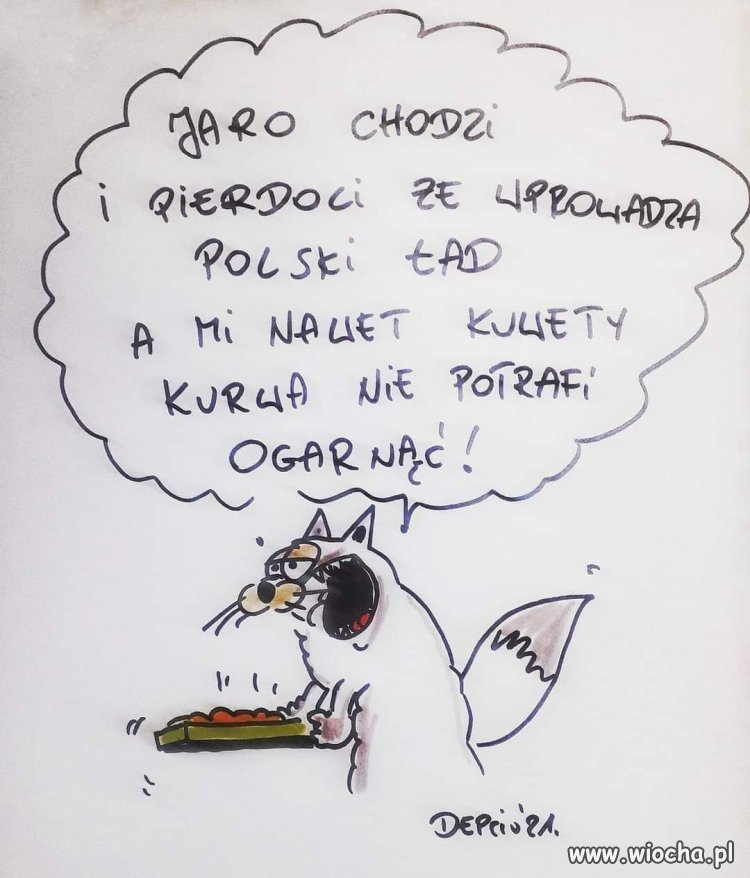 JARO CHODZI
I PIERDOLI ŻE WPROWADZA
POLSKI ŁAD
A MI NAWET KUWETY
KURWA NIE POTRAFI
OGARNĄĆ!
DEPCIU'21.
www.wiocha.pl